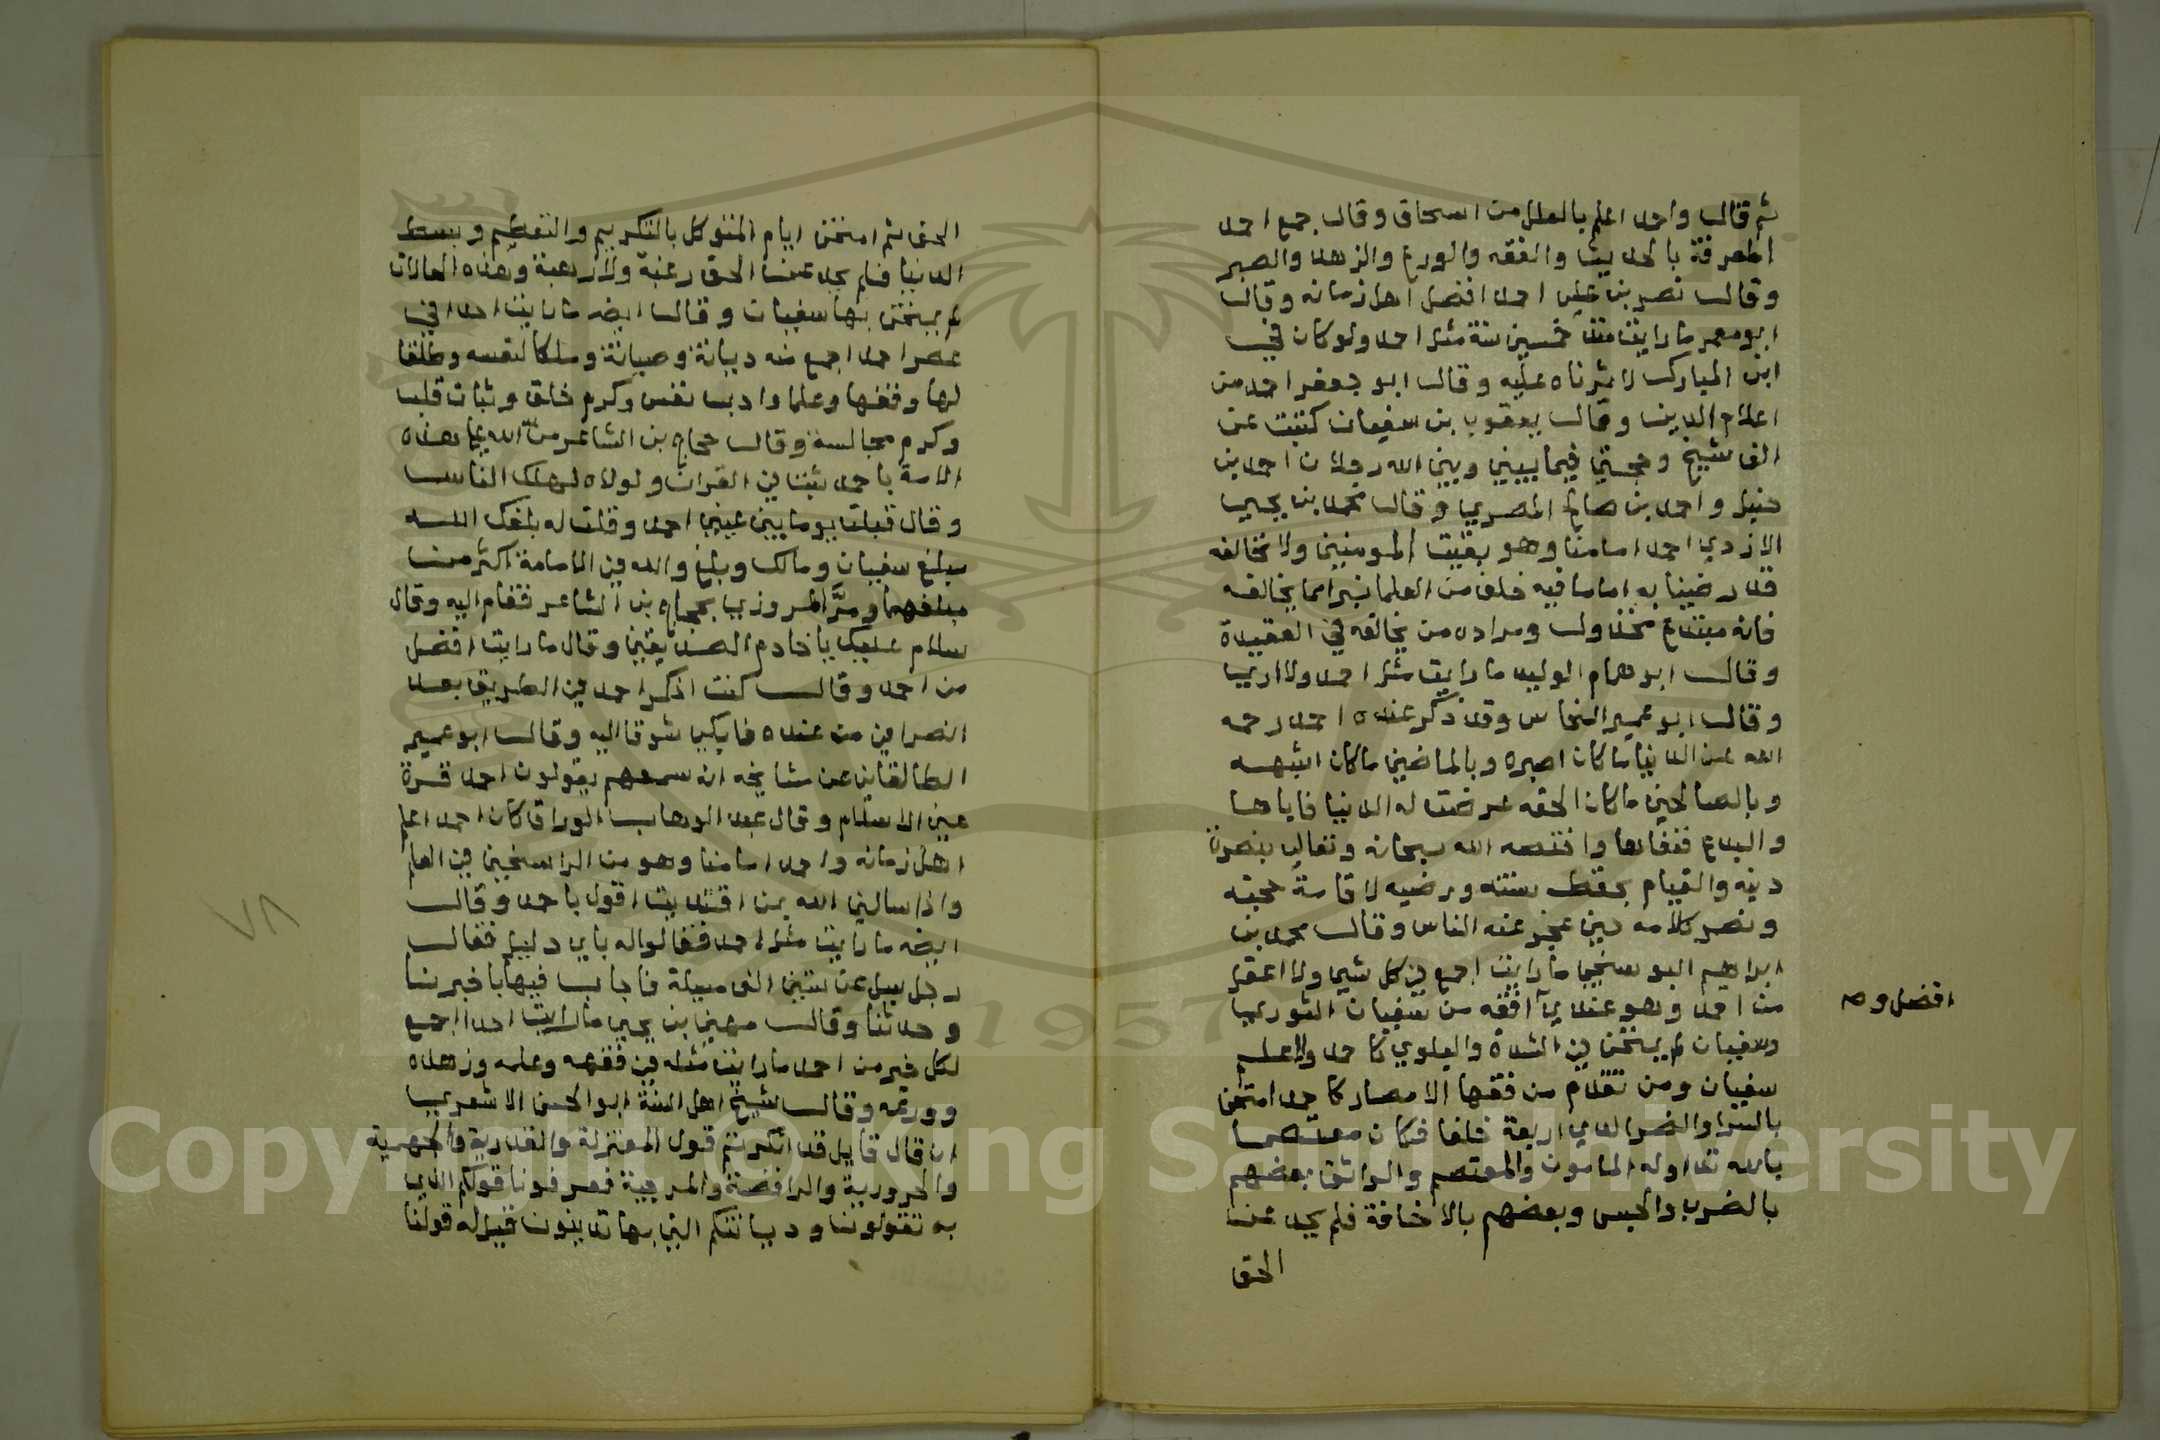 ثم قال واحمد اعلم بالعلل من اسحاق وقال جمع احمد
المعرفة بالحديث والفقه والورع والزهد والصبر
وقال نصر بن علي احمد افضل اهل زمانه وقال
ابو معمر ما رايت منذ خمسين سنة مثل احمد ولو كان في
ابن المبارك لاثرناه عليه وقال ابو جعفر احمد من
اعلام الدين وقال يعقوب بن سفيان كتبت عن
الف شيخ وحجتي فيما بيني وبين الله رجلان احمد بن
حنبل واحمد بن صالح المصري وقال محمد بن يحيى
الازدي احمد امامنا وهو بقيت المومنين ولا نخالفه
قد رضينا به اماما فيه خلف من العلما نبرا مما يخالفه
فانه مبتدع مخذول ومراده من يخالفه في العقيدة
وقال ابو همام الوليد ما رايت مثل احمد ولا ارى
وقال ابو عمير النحاس وقد ذكر عنده احمد رحمه
الله عن الدنيا ما كان اصبره وبالماضين ما كان اشبهه
وبالصالحين ما كان الحقه عرضت له الدنيا فاباها
والبدع فنفاها واختصه الله سبحانه وتعالى بنصرة
دينه والقيام بحفظ سنته ورضيه لاقامة حجته
ونصر كلامه حين عجز عنه الناس وقال محمد بن
ابراهيم البوسنجي ما رايت اجمع في كل شي ولا اعقل
من احمد وهو عندي افقه من سفيان الثوري
وسفيان لم يمتحن في الشدة والبلوي كاحمد ولا علم
سفيان ومن تقدم من فقها الامصار كاحمد امتحن
بالسرا والضرا لدي اربعة خلفا فكان معتصما
بالله تداوله المامون والمعتصم والواثق بعضهم
بالضرب والحبس وبعضهم بالاخافة فلم يحد عن
الحق
افضل و
الحق ثم امتحن ايام المتوكل بالتكريم والتعظيم وبسط
الدنيا فلم يحد عن الحق رغبة ولا رهبة وهذه الحالات
لم يمتحن بها سفيان وقال ايضه ما رايت احدا في
عصر احمد اجمع منه ديانة وصيانة وملكا لنفسه وطلقا
لها وفقها وعلما وادب نفس وكرم خلق وثبات قلب
وكرم مجالسة وقال حجاج بن الشاعر من الله على هذه
الامة باحمد ثبت في القران ولولاه لهلك الناس
وقال قبلت يوما بين عيني احمد وقلت له بلغك الله
مبلغ سفيان ومالك وبلغ والله في الامامة اكثر من
مبلغهما ومر المروزي بحجاج بن الشاعر فقام اليه وقال
سلام عليك يا خادم الصديقين وقال ما رايت افضل
من احمد وقال كنت اذكر احمد في الطريق بعد
انصرافي من عنده فابكي شوقا اليه وقال ابو عمير
الطالقاني عن مشايخه انه سمعهم يقولون احمد قرة
عين الاسلام وقال عبد الوهاب الوراق كان احمد اعلم
اهل زمانه واحمد امامنا وهو من الراسخين في العلم
واذا سالني الله بمن اقتديت اقول باحمد وقال
ايضه ما رايت مثل احمد فقالوا له باي دليل فقال
رجل سيل عن ستين الف مسيلة فاجاب فيها باخبرنا
وحدثنا وقال مهني بن يحيى ما رايت احدا اجمع
لكل خير من احمد ما رايت مثله في فقهه وعلمه وزهده
وورعه وقال شيخ اهل السنة ابو الحسن الاشعري
ان قال قايل قد انكرتم قول المعتزلة والقدرية والجهمية
والحرورية والرافضة والمرجية فعرفونا قولكم الذي
به تقولون وديانتكم التي بها تدينون قيل له قولنا
٧٨